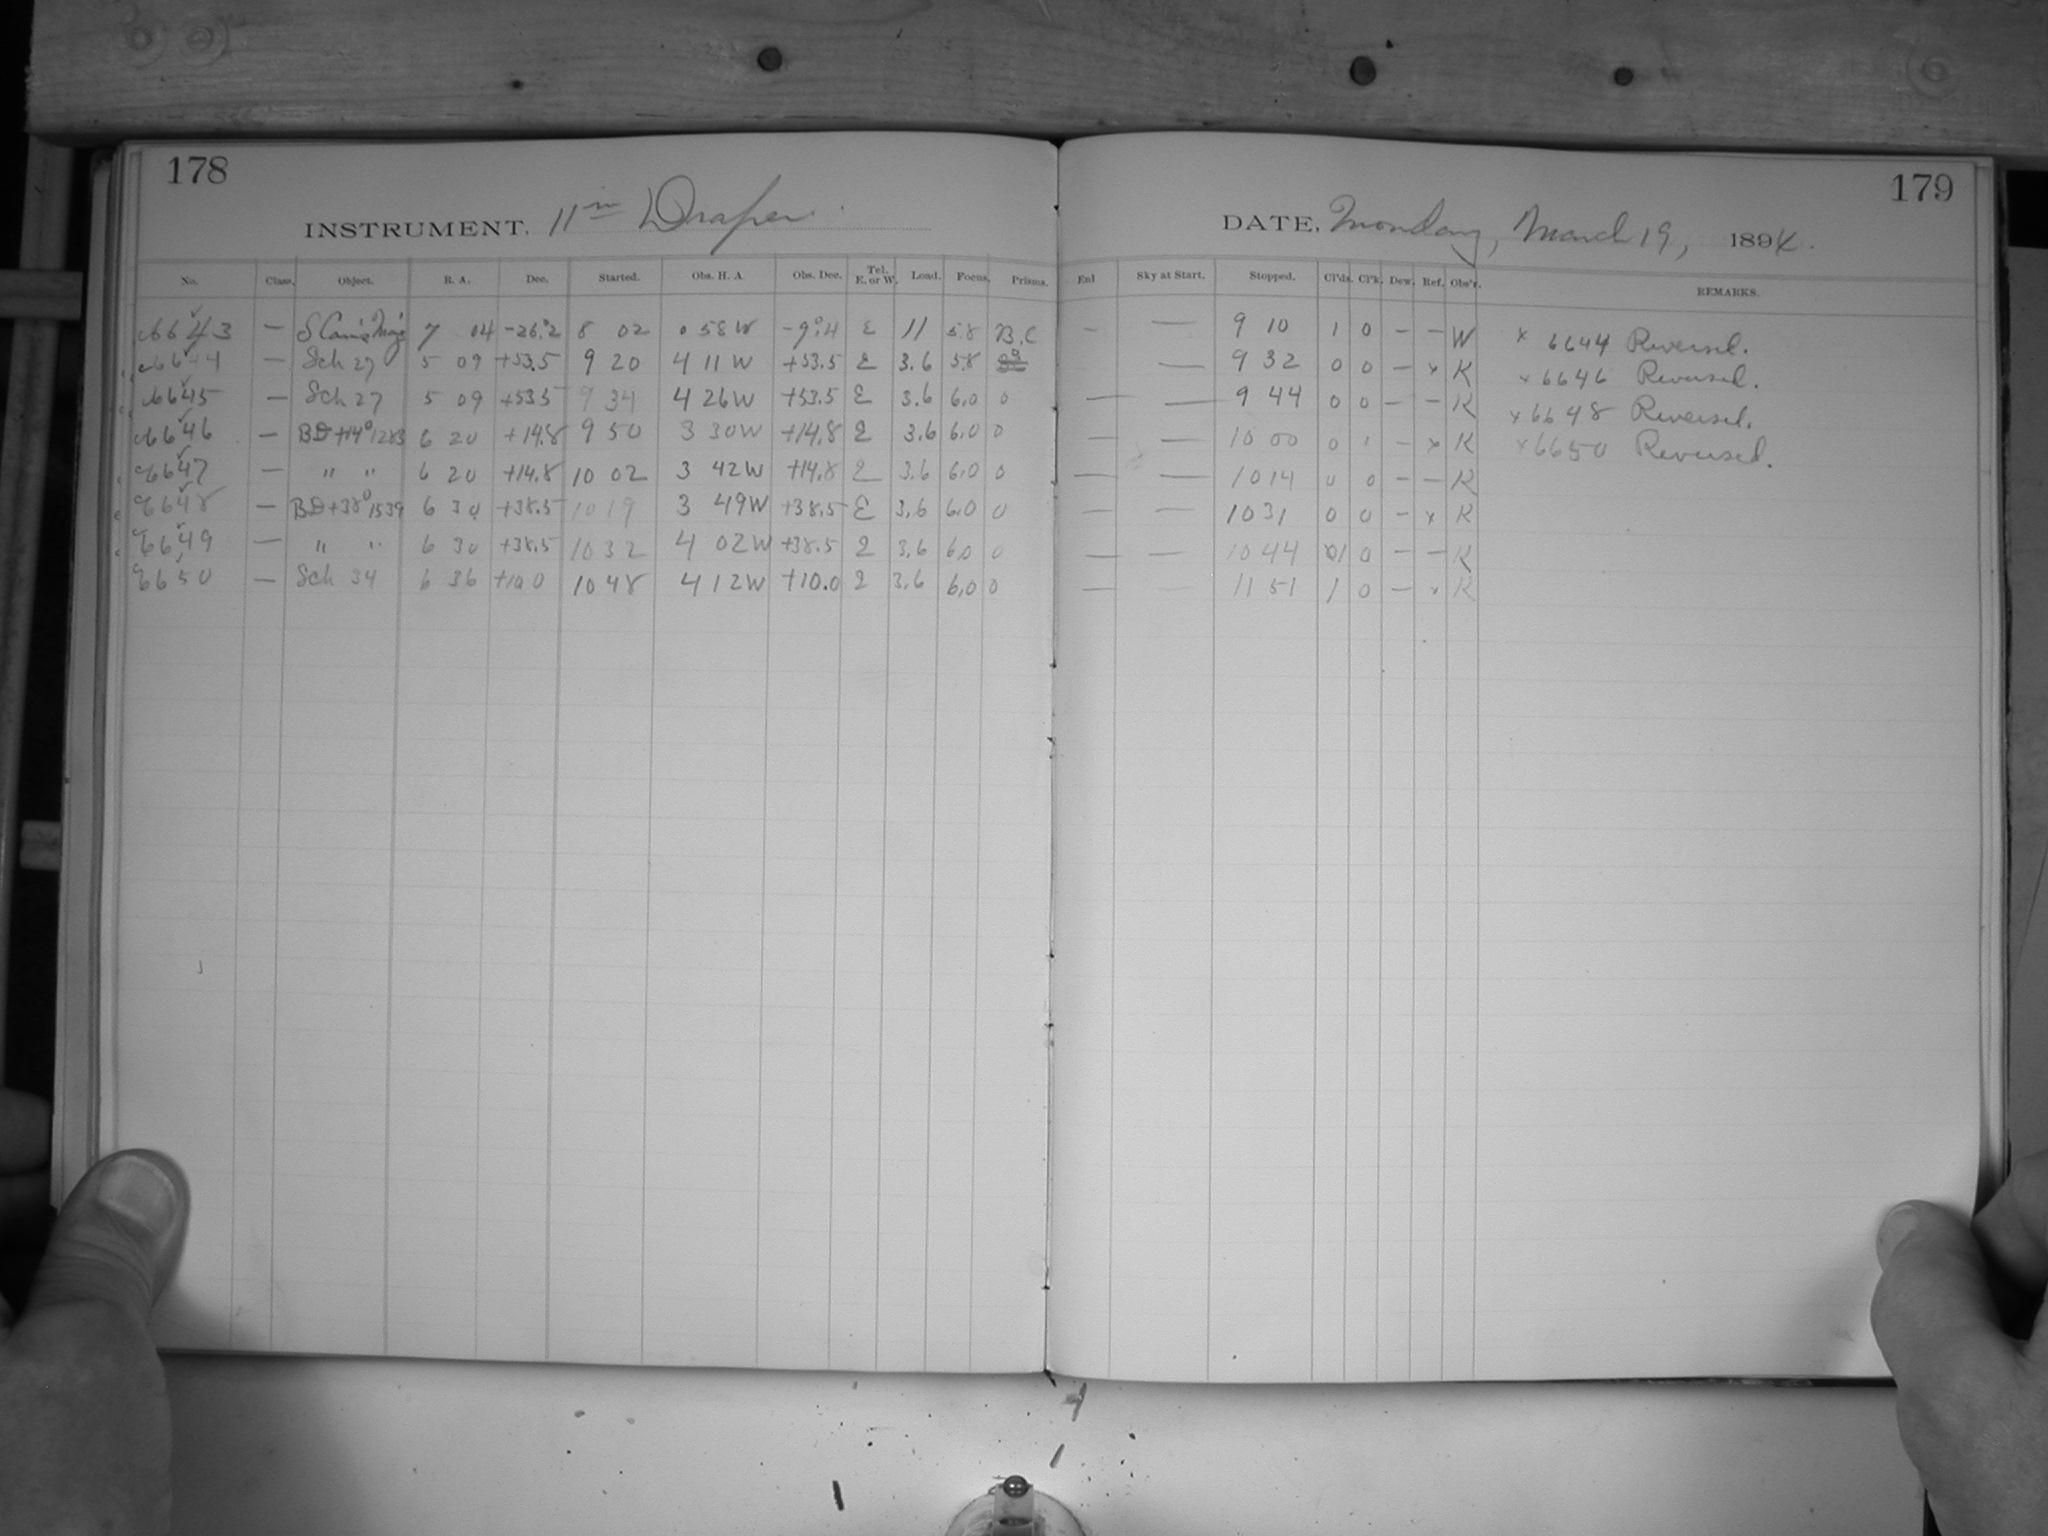 178
INSTRUMENT. 11 in Draper.
No. Class. Object. R. A. Dec. Started. Obs. H. A. Obs. Dec. Tel. E. or W. Load. Focus. Prisms.
6643 — S Canis Maj's 7 04 -26.°2 8 02 0 58 W -9.°4 E 11 5.8 B.C
6644 — Sch 27 5 09 +53.5 9 20 4 11 W +53.5 E 3.6 5.8
6645 — Sch 27 5 09 +53.5 9 34 4 26 W +53.5 E 3.6 6.0 0
6646 — BD+14°1283 6 20 +14.8 9 50 3 30 W +14.8 E 3.6 6.0 0
6647 — " " 6 20 +14.8 10 02 3 42 W +14.8 E 3.6 6.0 0
6648 — BD+38°1539 6 30 +38.5 10 19 3 49 W +38.5 E 3.6 6.0 0
6649 — " " 6 30 +38.5 10 32 4 02 W +38.5 E 3.6 6.0 0
6650 — Sch 34 6 36 +10.0 10 48 4 12 W +10.0 E 3.6 6.0 0
179
DATE, Monday, March 19, 1894.
Enl Sky at Start. Stopped. Cl'ds. Cl'k. Dew. Ref. Obs'r. REMARKS.
— — 9 10 1 0 — — W x 6644 Reversed.
— 9 32 0 0 — x K x 6646 Reversed.
— — 9 44 0 0 — — K x 6648 Reversed.
— — 10 00 0 1 — x K x 6650 Reversed.
— — 10 14 0 0 — — K
— — 10 31 0 0 — x K
— — 10 44 1 0 — — K
— — 11 51 1 0 — x K